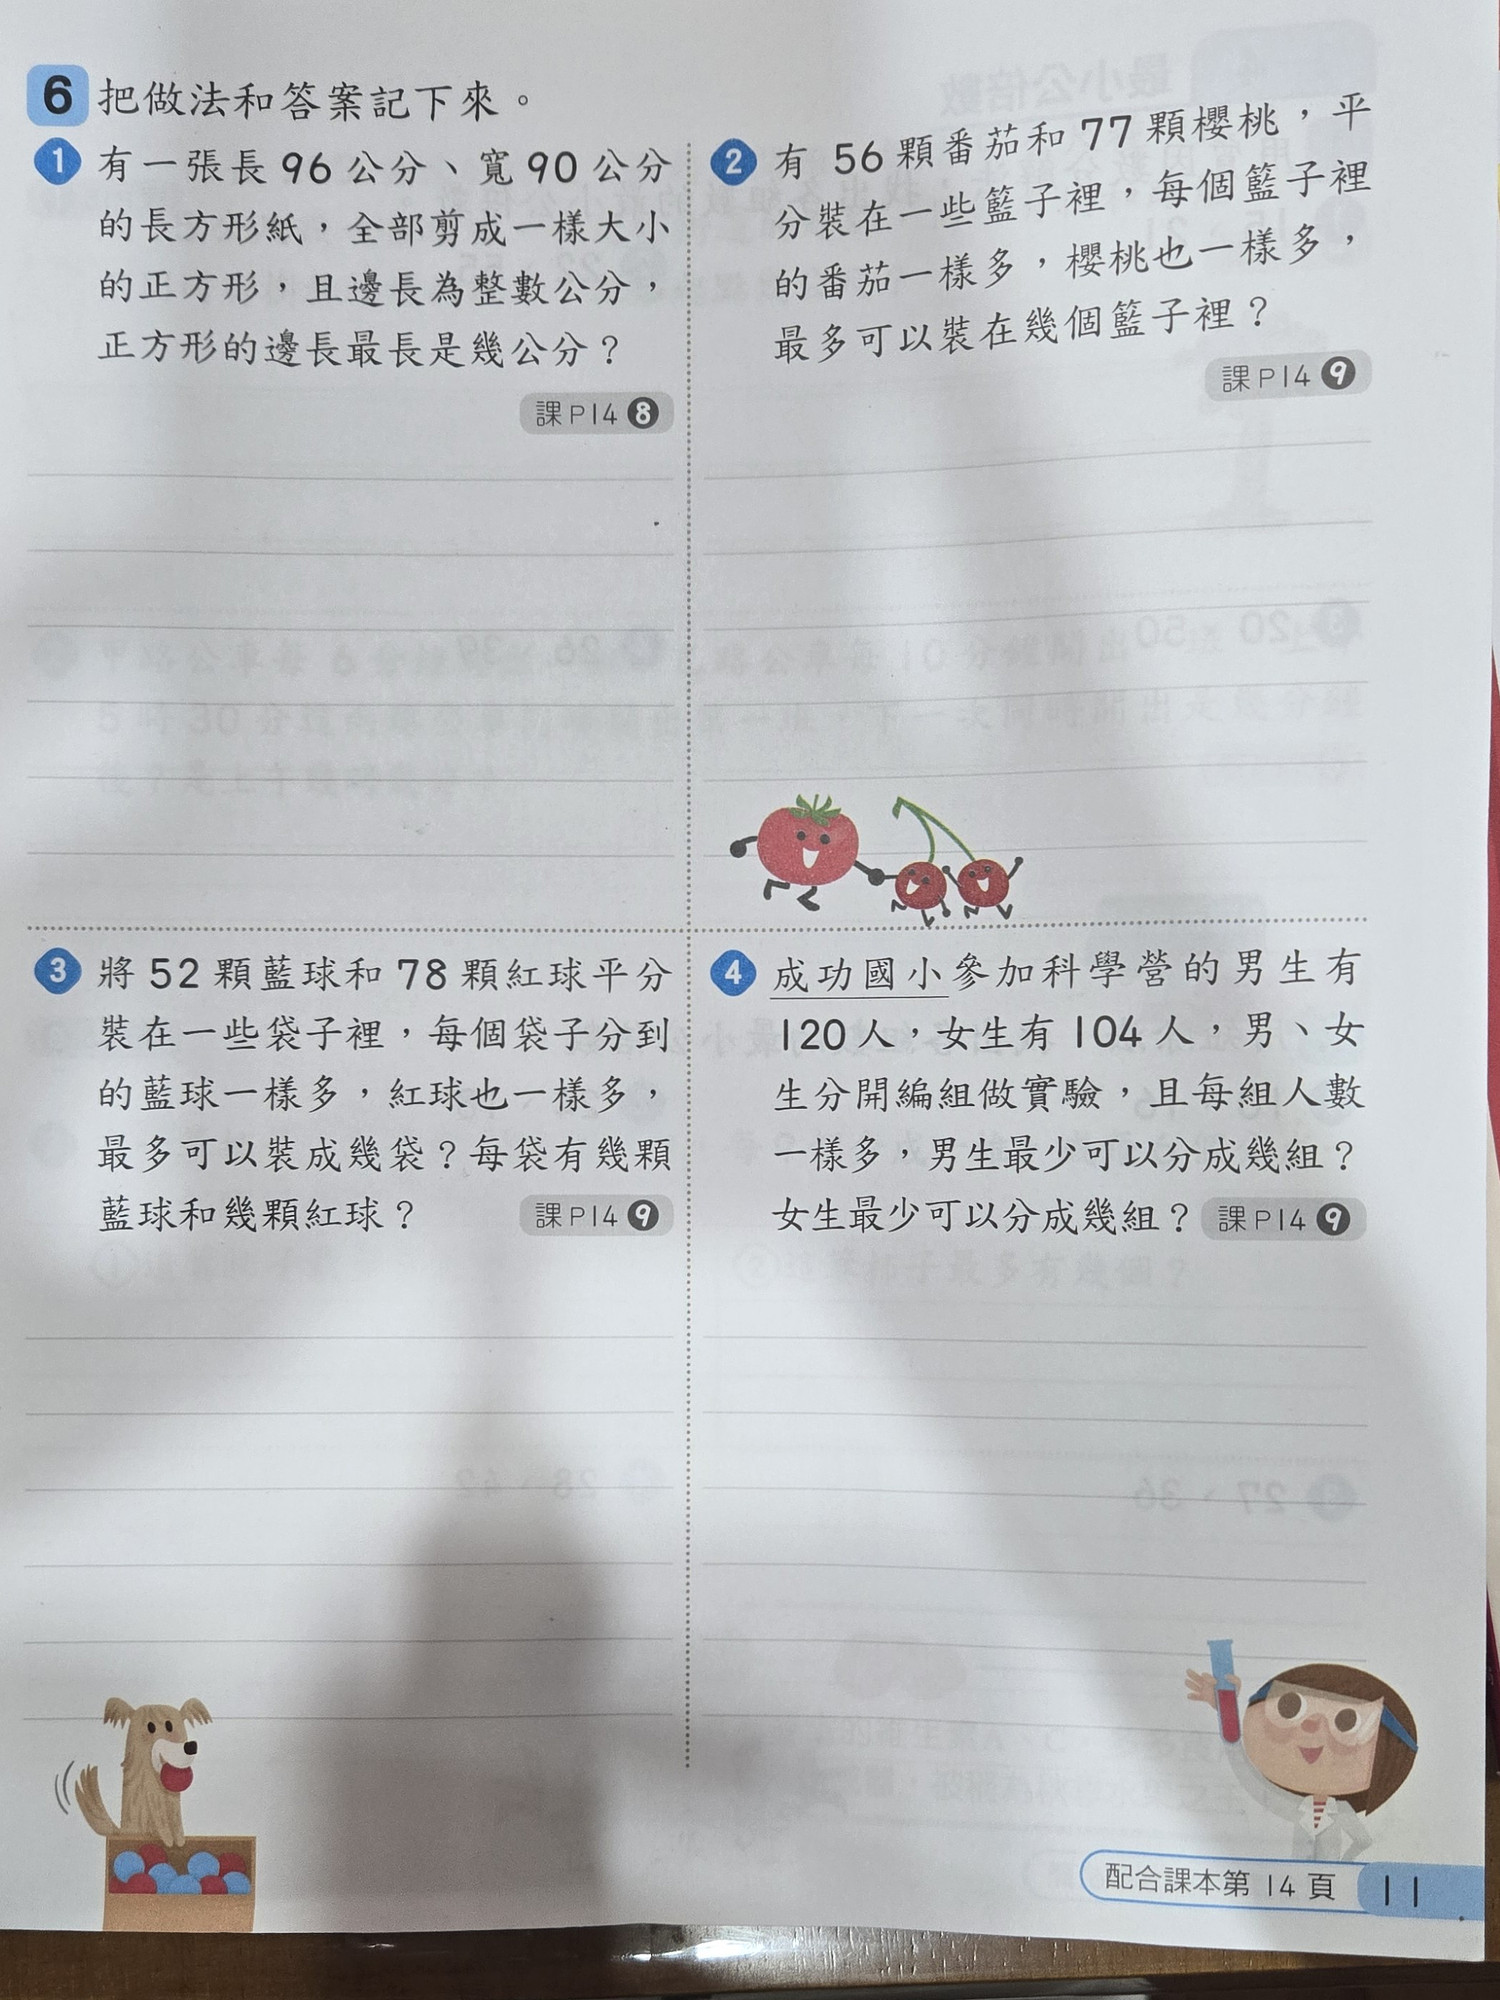 6 把做法和答案記下來。
1 有一張長 96 公分、寬 90 公分
的長方形紙，全部剪成一樣大小
的正方形，且邊長為整數公分，
正方形的邊長最長是幾公分？
課P14 8
2 有 56 顆番茄和 77 顆櫻桃，平
分裝在一些籃子裡，每個籃子裡
的番茄一樣多，櫻桃也一樣多，
最多可以裝在幾個籃子裡？
課P14 9
3 將 52 顆藍球和 78 顆紅球平分
裝在一些袋子裡，每個袋子分到
的藍球一樣多，紅球也一樣多，
最多可以裝成幾袋？每袋有幾顆
藍球和幾顆紅球？ 課P14 9
4 成功國小參加科學營的男生有
120 人，女生有 104 人，男、女
生分開編組做實驗，且每組人數
一樣多，男生最少可以分成幾組？
女生最少可以分成幾組？ 課P14 9
配合課本第 14 頁 11